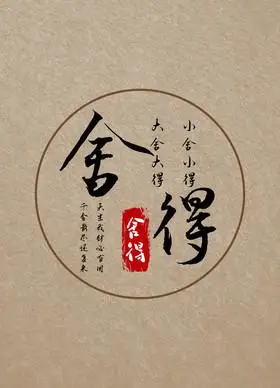 舍得
小舍小得
大舍大得
天生我材必有用
千金散尽还复来
舍得